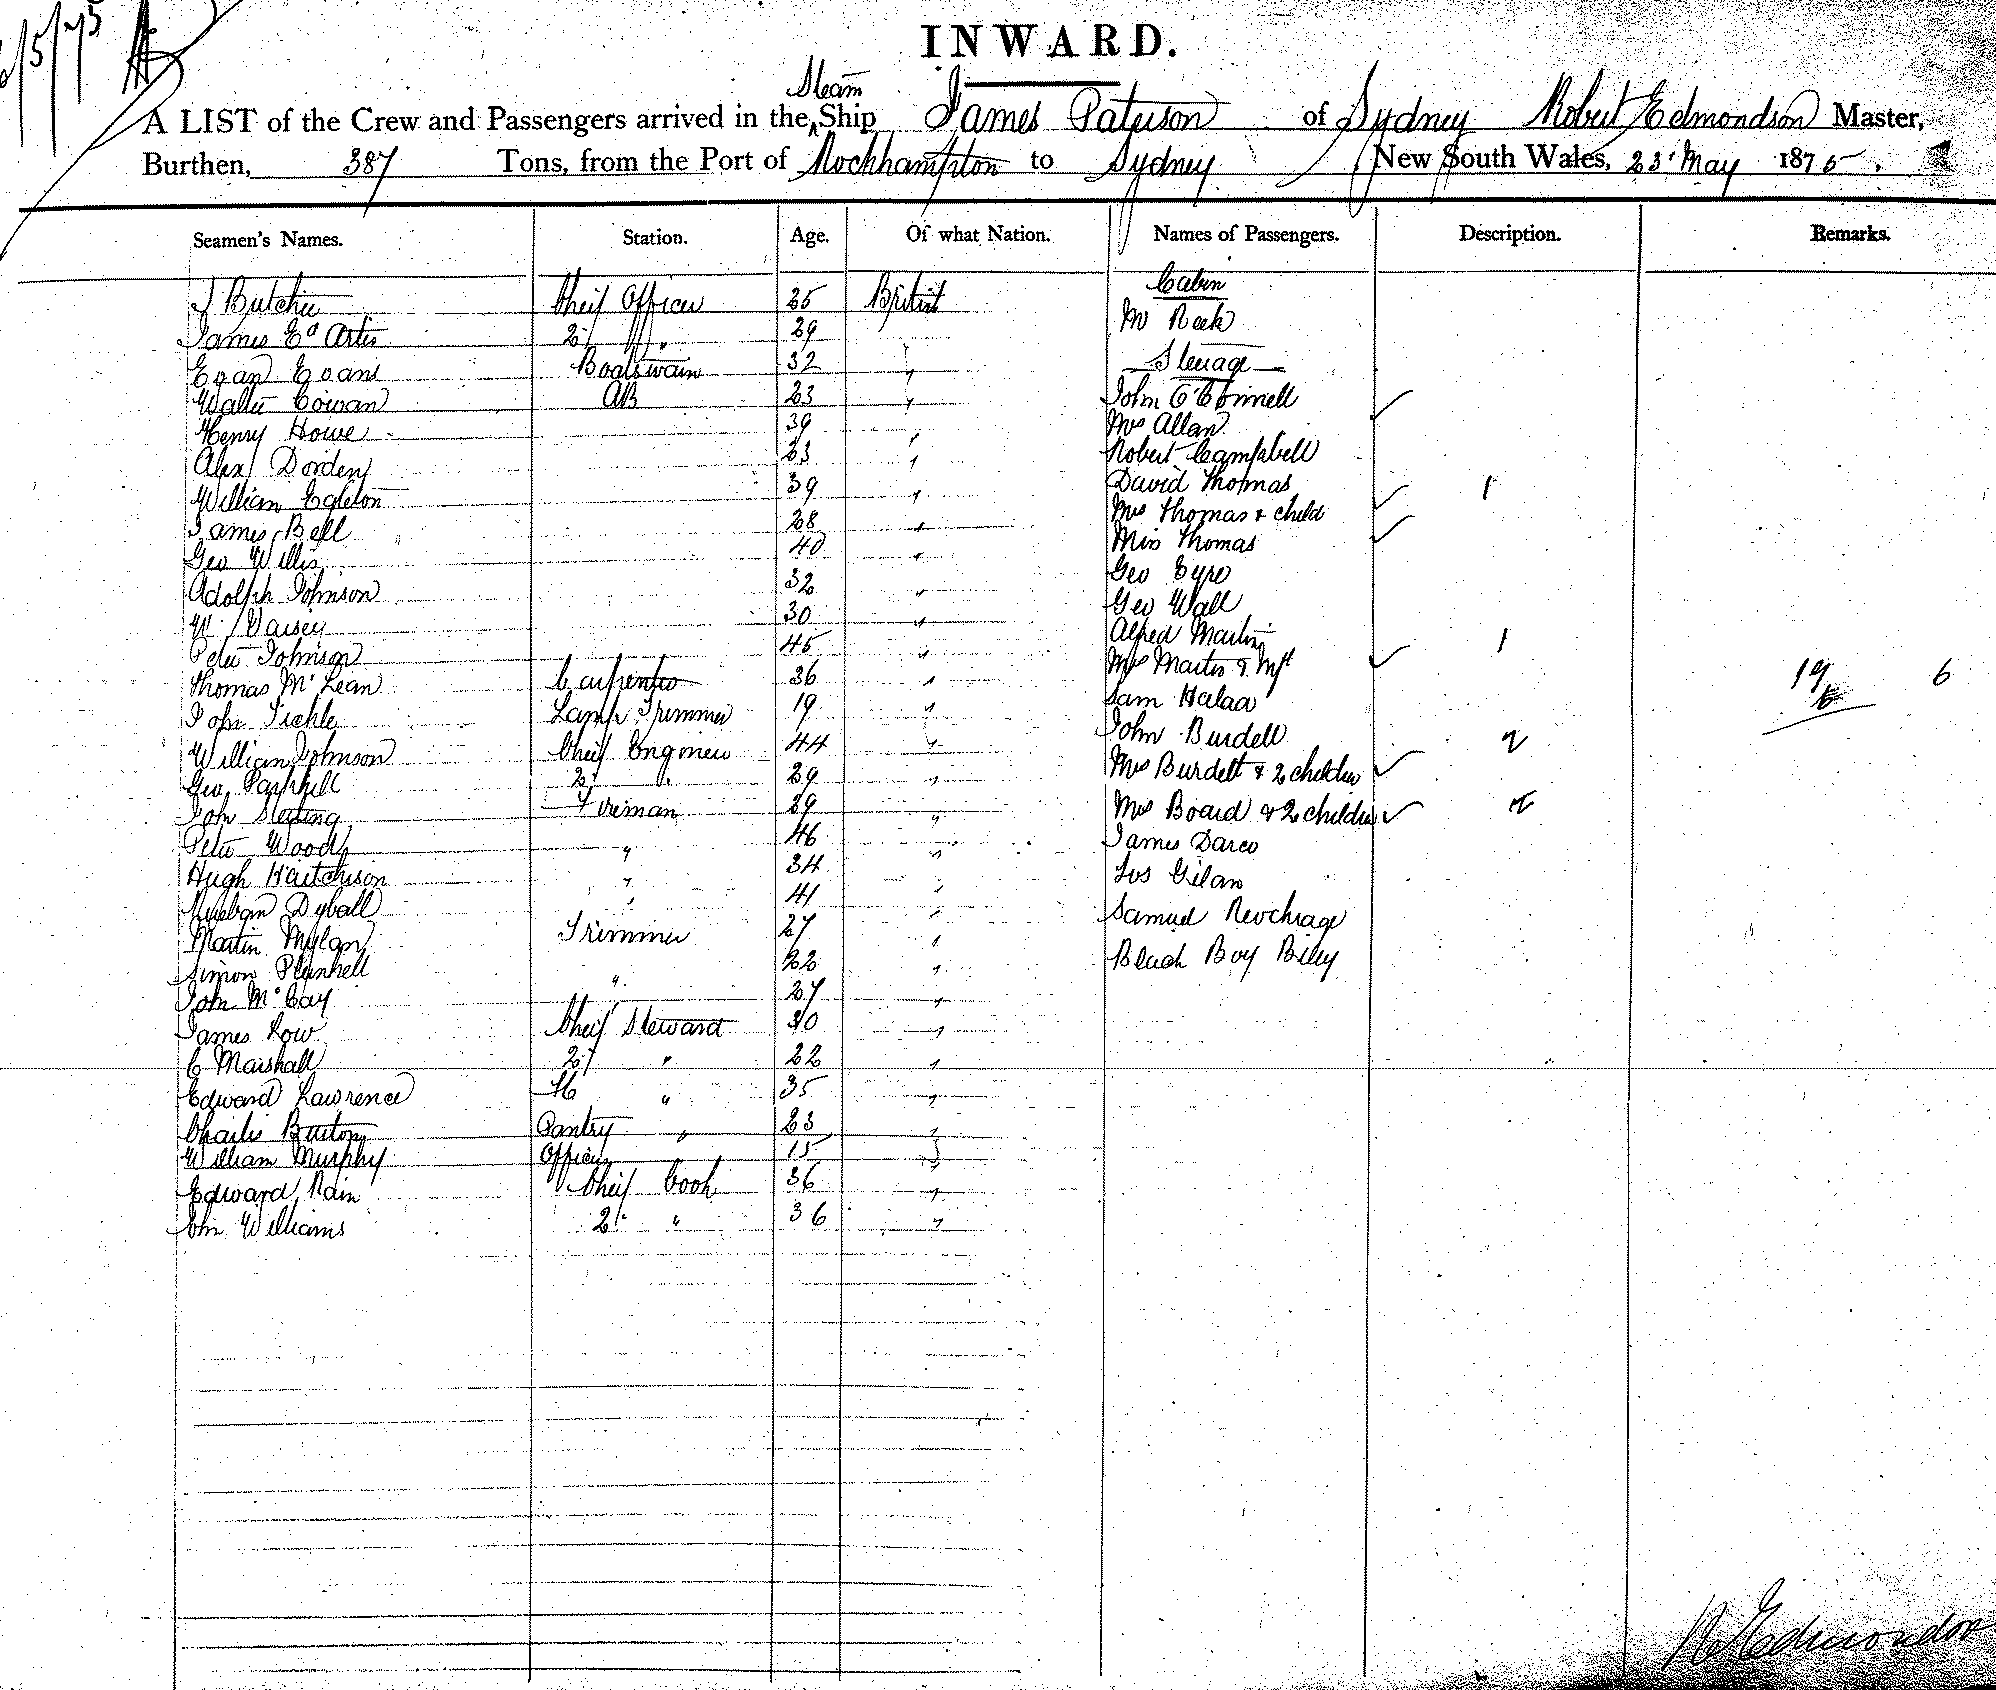 INWARD.
A LIST of the Crew and Passengers arrived in the Steam Ship James Paterson of Sydney Robert Edmondson Master,
Burthen, 387 Tons, from the Port of Rockhampton to Sydney New South Wales, 23 May 1875.
Seamen's Names. Station. Age. Of what Nation. Names of Passengers. Description. Remarks.
Cabin
J Butcher Cheif Officer 25 British
Mr Reek
James Ed Artis 2 " 29
Evan Evans Boatswain 32 " Steerage
Walter Cowan AB 23 " John O'Connell
Henry Howe 39 " Mrs Allan
Alex Dorden 23 " Robert Campbell
William Egleton 39 " David Thomas 1
James Bell 28 " Mrs Thomas & child
Geo Willis 40 " Miss Thomas
Adolph Johnson 32 " Geo Eyre
30 " Geo Wall
Peter Johnson 45 " Alfred Martin 1
Thomas McLean Carpenter 36 " Mrs Martin & Inft 19 6
John Tickle Lamp Trimmer 19 " Sam Halaa
William Johnson Cheif Engineer 44 " John Burdell 2
Geo Parkhill 2 " 29 " Mrs Burdett & 2 children
John Sterling Fireman 29 " Mrs Board & 2 children 2
Peter Wood " 46 " James Darco
Hugh Hutchison " 34 " Jos Gilan
Dyball " 41 " Samuel
Martin Mylan Trimmer 27 "
Simon Plunkell " 22 " Black Boy Billy
John McCay 27 "
James Low Cheif Steward 30 "
C Marshall 2 " 22 "
Edward Lawrence " 35 "
Charles Burton Pantry " 23 "
William Murphy Officers 15 "
Edward Nain Cheif Cook 36 "
John Williams 2 " 36 "
R Edmondson